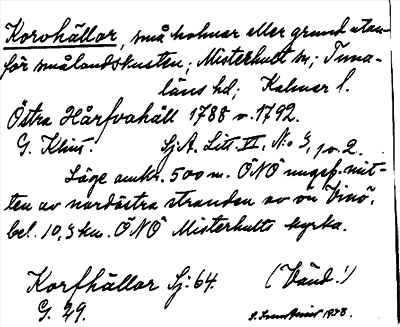 Korvhällor, små holmar eller grund utan-
för smålandskusten; Misterhult sn; Tuna-
läns hd; Kalmar l.
Östra Hårfvahäll 1788 o. 1792.
G. Klint. Sj.A. Litt. II, N:o 3, po. 2.
Läge omkr. 500 m. ÖNÖ ungef. mit-
ten av nordöstra stranden av ön Vinö,
bel. 10,3 km. ÖNÖ Misterhults kyrka.
Korfhällar Sj: 64. (Vänd!)
G. 29. 1938.